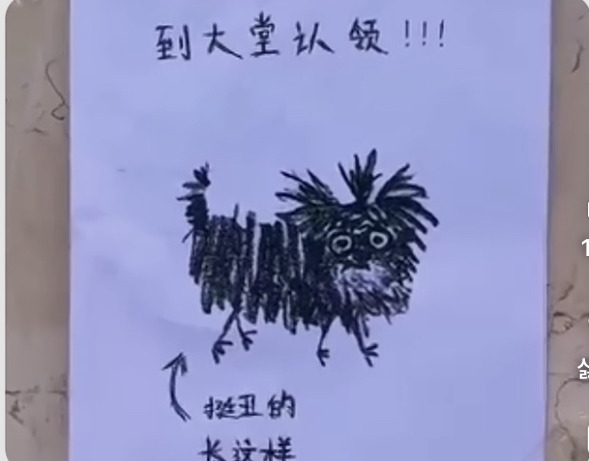 到大堂认领!!!
挺丑的
长这样